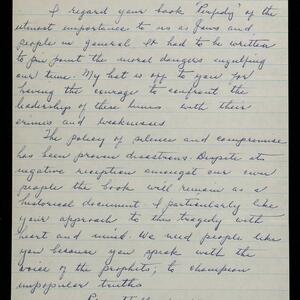 I regard your book "Perfidy" of the
utmost importance to us as Jews and
people in general. It had to be written
to pin point the moral dangers engulfing
our time. My hat is off to you for
having the courage to confront the
leadership of these times with their
crimes and weaknesses
The policy of silence and compromise
has been proven disastrous. Despite its
negative reception amongst our own
people the book will remain as a
historical document. I particularly like
your approach to this tragedy with
heart and mind. We need people like
you because you speak with the
voice of the prophets; to champion
unpopular truths